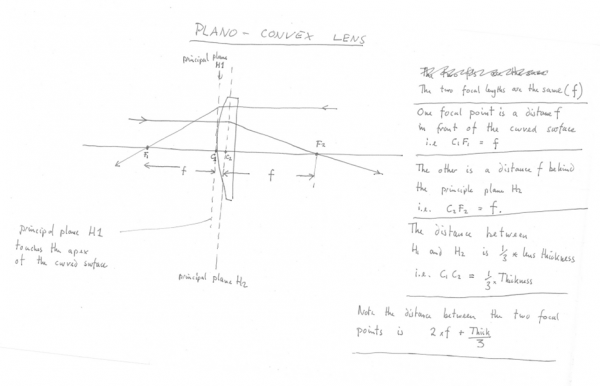 PLANO - CONVEX LENS
principal plane
H1
F1
C1
C2
F2
f
f
principal plane H1
touches the apex
of the curved surface
principal plane H2
The two focal lengths are the same (f)
One focal point is a distance f
in front of the curved surface
i.e C1F1 = f
The other is a distance f behind
the principle plane H2
i.e. C2F2 = f.
The distance between
H1 and H2 is 1/3 * lens thickness
i.e. C1C2 = 1/3 * Thickness
Note the distance between the two focal
points is 2 x f + Thick/3